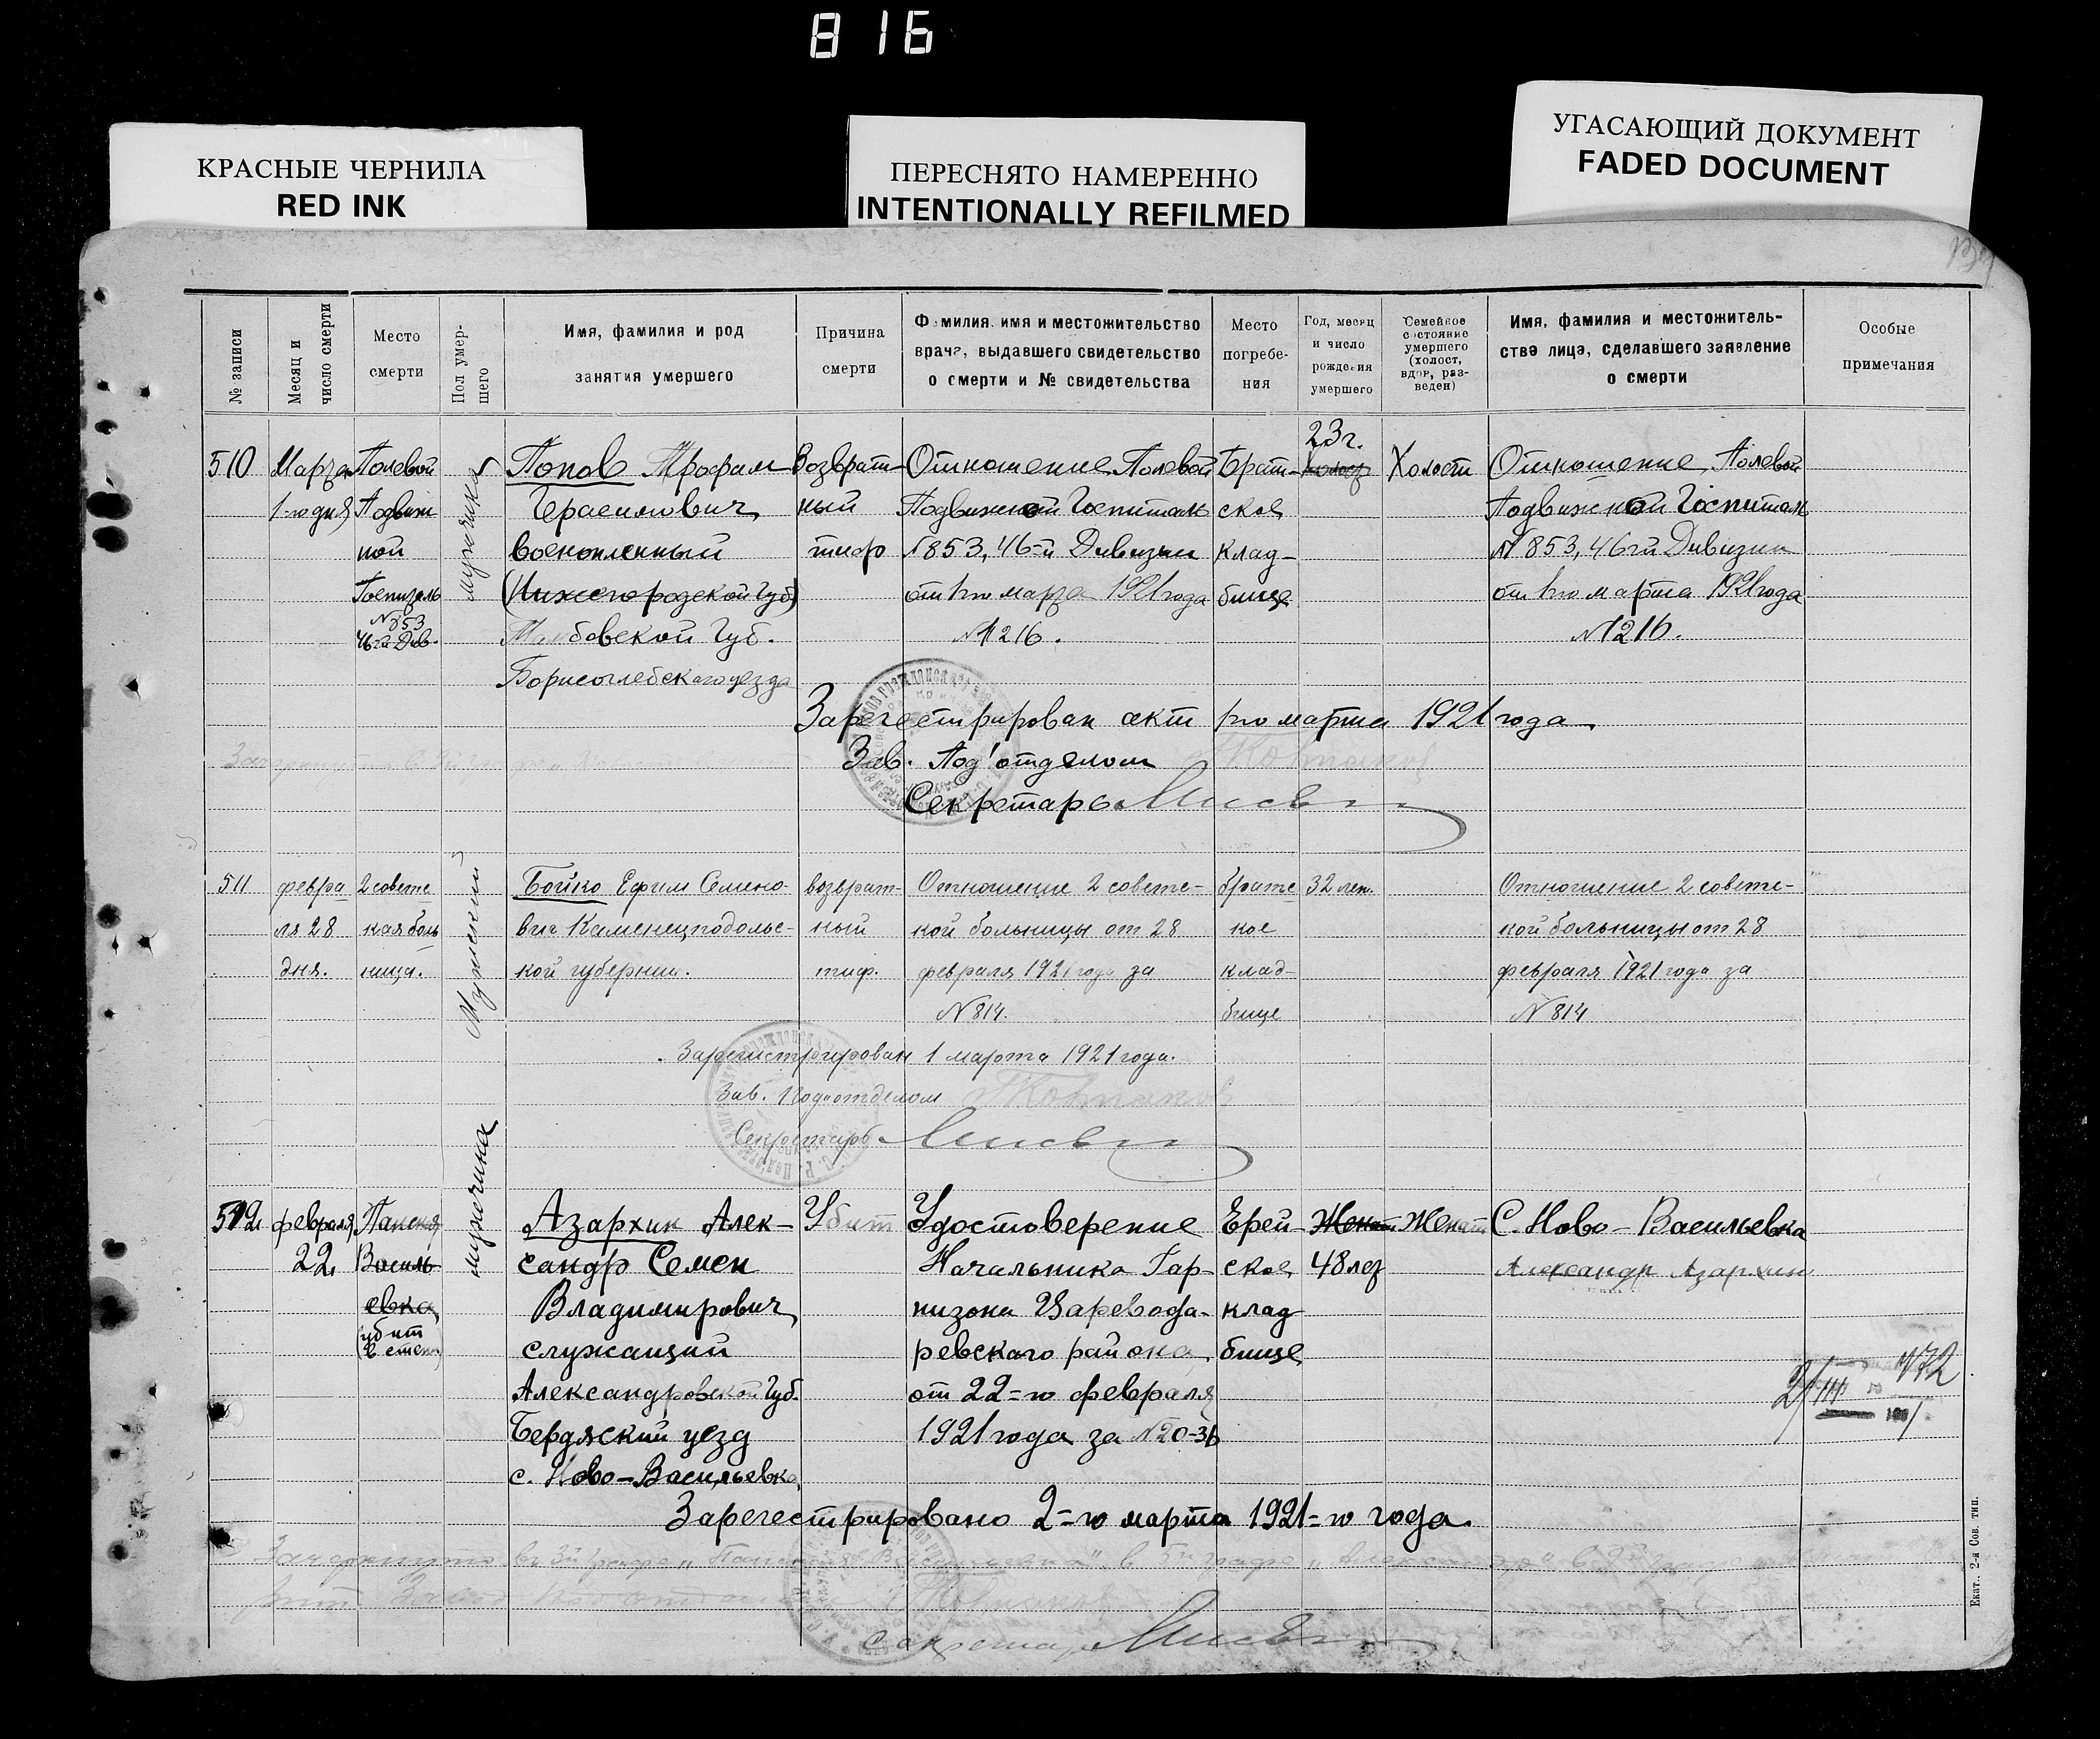 816
КРАСНЫЕ ЧЕРНИЛА
RED INK
ПЕРЕСНЯТО НАМЕРЕННО
INTENTIONALLY REFILMED
УГАСАЮЩИЙ ДОКУМЕНТ
FADED DOCUMENT
№ записи
Месяц и
число смерти
Место
смерти
Пол умер-
шего
Имя, фамилия и род
занятия умершего
Причина
смерти
Фамилия, имя и местожительство
врача, выдавшего свидетельство
о смерти и № свидетельства
Место
погребе-
ния
Год, месяц
и число
рождения
умершего
Семейное
состояние
умершего
(холост,
вдов, раз-
веден)
Имя, фамилия и местожитель-
ство лица, сделавшего заявление
о смерти
Особые
примечания
510
Марта
1-го дня
Полевой
Подвиж
ной
Госпиталь
№853
46й Див.
мужчина
Попов Трофим
Герасимович
военопленный
(Нижегородской Губ)
Тамбовской Губ.
Борисоглебскаго уезда
Возврат-
ный
тиф
Отношение Полевой
Подвижной Госпиталь
№853, 46-й Дивизии
от 1го марта 1921 года
№1216.
Брат-
ское
клад-
бище
23г.
холост
Холост
Отношение Полевой
Подвижной Госпиталь
№853, 46й Дивизии
от 1го марта 1921 года
№1216.
Зарегестрирован акт 1го марта 1921 года
Зав. Под'отделом
Секретарь
511
февра
ля 28
дня.
2 советс
кая боль
ница.
Мужской
Бойко Ефим Семено-
вич Каменецподольс-
кой губернии.
возврат-
ный
тиф.
Отношение 2 советс-
кой больницы от 28
февраля 1921 года за
№814.
братс
кое
клад-
бище
32 лет.
Отношение 2 советс-
кой больницы от 28
февраля 1921 года за
№814
Зарегистрирован 1 марта 1921 года.
Зав. Подотделом
Секретарь
512
февраля
22
Панская
Василь-
евка
(убит
в степи)
мужчина
Азархин Алек-
сандр Семен
Владимирович
служащий
Александровской Губ.
Бердяский уезд
с. Ново-Васильевка
Убит
Удостоверение
Начальника Гар-
низона Царевода-
ревского района
от 22=го февраля
1921 года за №20-36
Ерей-
ское
клад
бище
Женат
48 лет
Женат
С. Ново-Васильевка
Александр Азархин
2/III №72
Зарегестрировано 2=го марта 1921=го года.
секретарь
Екат. 2-я Сов. тип.